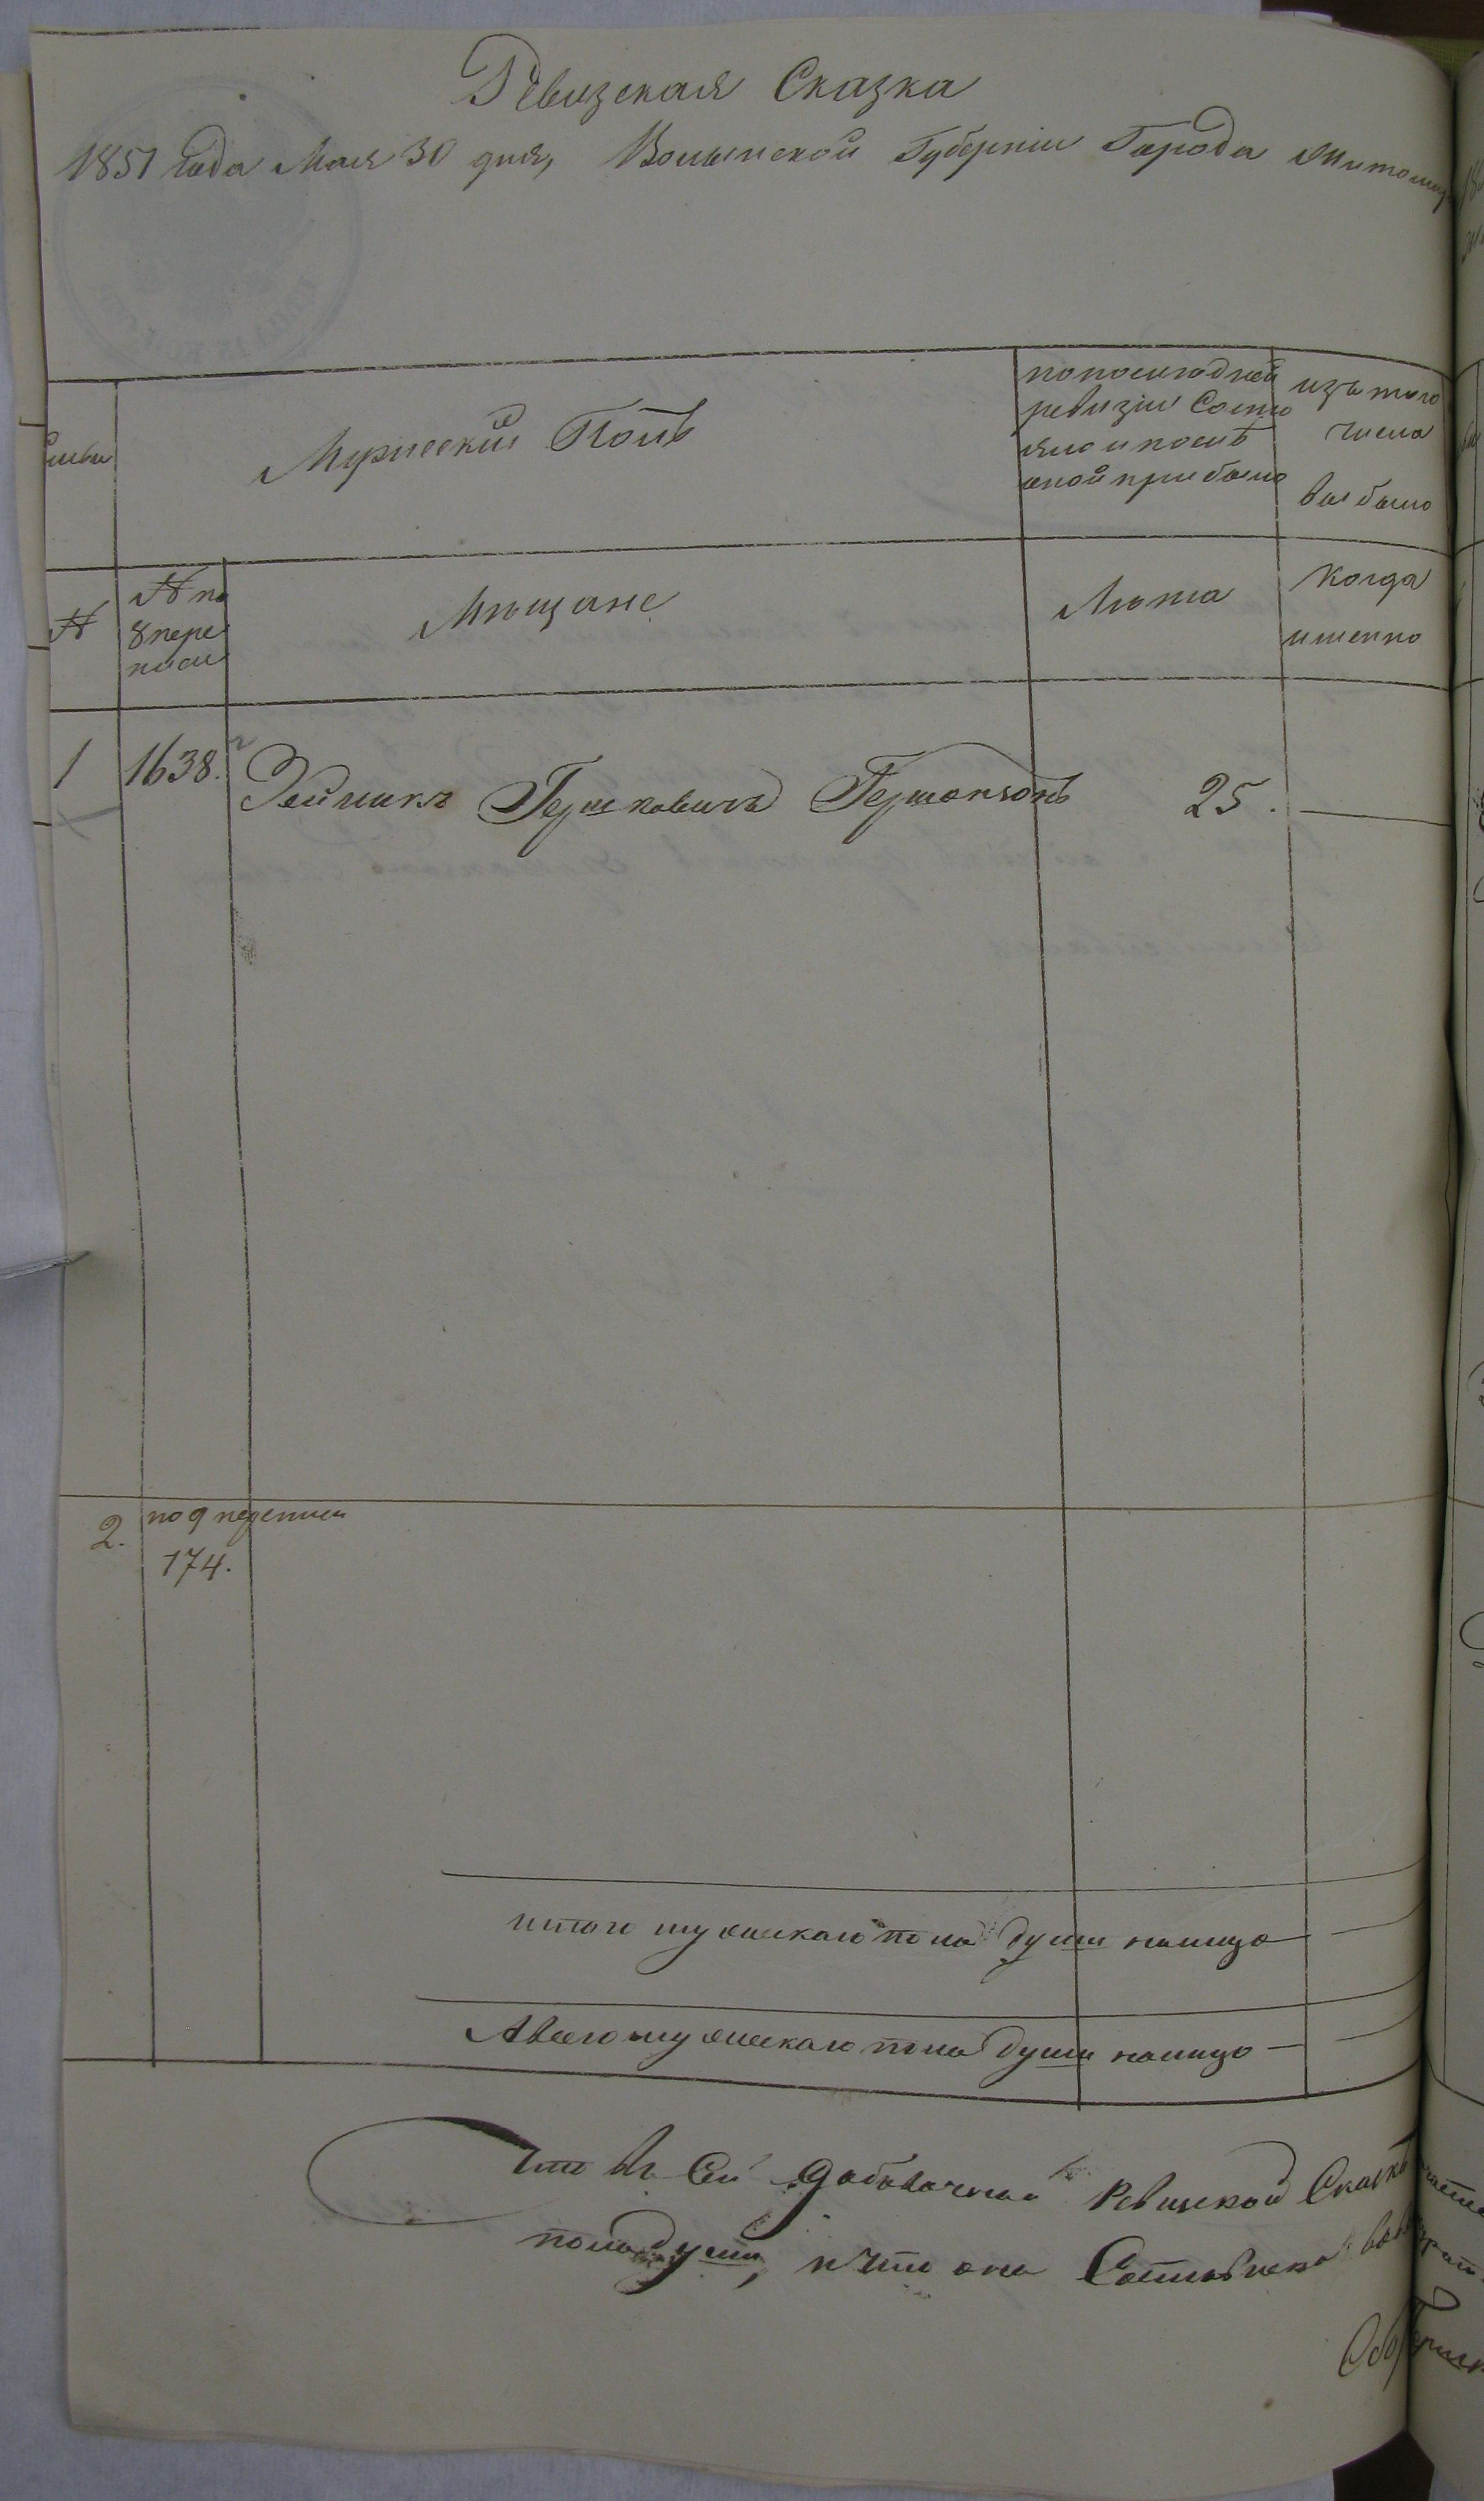 Ревизская Сказка
1851 года Мая 30 дня, Волынской Губерніи Города Житомир
Мужескій Полъ
по последней
ревизіи Состо
яло и послѣ
оной прибыло
изъ того
числа
выбыло
№
№ по
8 пере
писи
Мѣщане
Лѣта
Когда
именно
1
1638.
Зейликъ Гершковичъ Гершонзонъ
25.
2.
по 9 переписи
174.
итого мужескаго пола души налицо
А всего мужескаго пола души налицо
Что въ Сей добавочной Ревизской Сказкѣ
пола души, и что она Составлена